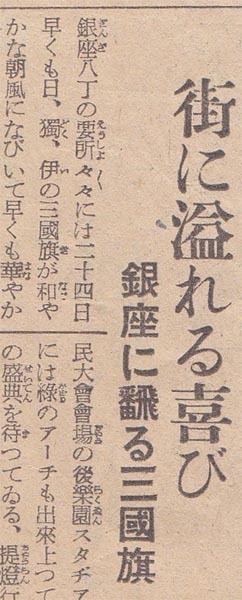 街に溢れる喜び
銀座に飜る三國旗
銀座八丁の要所々々には二十四日
早くも日、獨、伊の三國旗が和や
かな朝風になびいて早くも華やか
民大會會場の後樂園スタヂア
には綠のアーチも出來上つて
の盛典を待つてゐる、提燈行